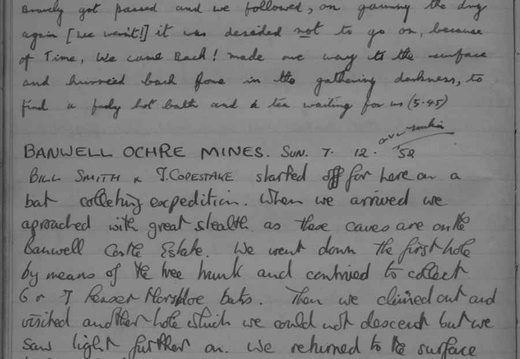 got passed and we followed, on gaining the dry
again [we weren't!] it was decided not to go on, because
of Time, We came Back! made our way to the surface
and hurried back in the gathering darkness, to
find a hot bath and a tea waiting for us (5.45)
BANWELL OCHRE MINES. SUN. 7. 12. 58
BILL SMITH & J. COPESTAKE started off for here on a
bat collecting expedition. When we arrived we
aproached with great stealth as these caves are on the
Banwell Castle Estate. We went down the first hole
by means of the tree trunk and contrived to collect
6 or 7 Horshoe bats. Then we climed out and
visited another hole which we could not descent but we
saw light further on. We returned to the surface